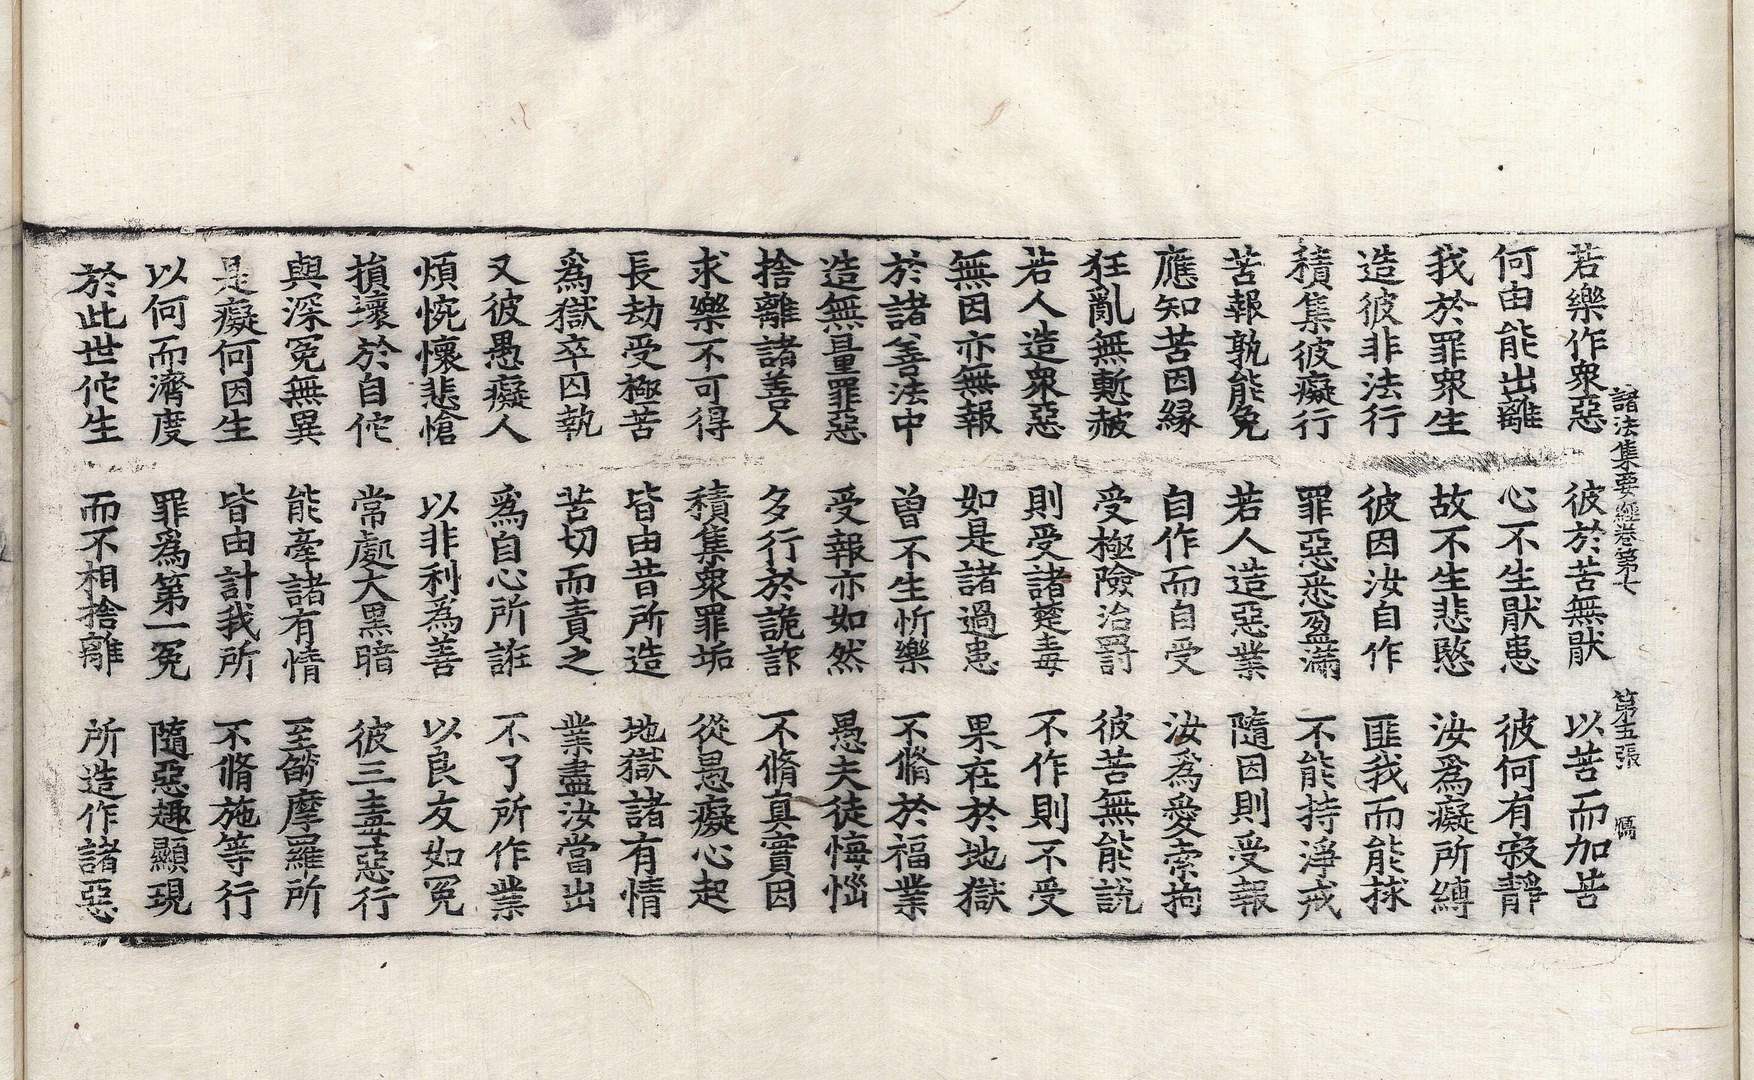 諸法集要經卷第七 第五張 馮
若樂作衆惡 彼於苦無猒 以苦而加苦
何由能出離 心不生猒患 彼何有寂靜
我於罪衆生 故不生悲愍 汝爲癡所縛
造彼非法行 彼因汝自作 匪我而能救
積集彼癡行 罪惡悉盈滿 不能持淨戒
苦報孰能免 若人造惡業 隨因則受報
應知苦因緣 自作而自受 汝爲愛索拘
狂亂無慙赧 受極險治罸 彼苦無能說
若人造衆惡 則受諸楚毒 不作則不受
無因亦無報 如是諸過患 果在於地獄
於諸善法中 曾不生忻樂 不脩於福業
造無量罪惡 受報亦如然 愚夫徒悔惱
捨離諸善人 多行於詭詐 不脩真實因
求樂不可得 積集衆罪垢 從愚癡心起
長劫受極苦 皆由昔所造 地獄諸有情
爲獄卒囚執 苦切而責之 業盡汝當出
又彼愚癡人 爲自心所誑 不了所作業
煩惋懷悲愴 以非利為善 以良友如冤
損壞於自佗 常處大黑暗 彼三毒惡行
與深冤無異 能牽諸有情 至㷿摩羅所
是癡何因生 皆由計我所 不脩施等行
以何而濟度 罪爲第一冤 隨惡趣顯現
於此世佗生 而不相捨離 所造作諸惡